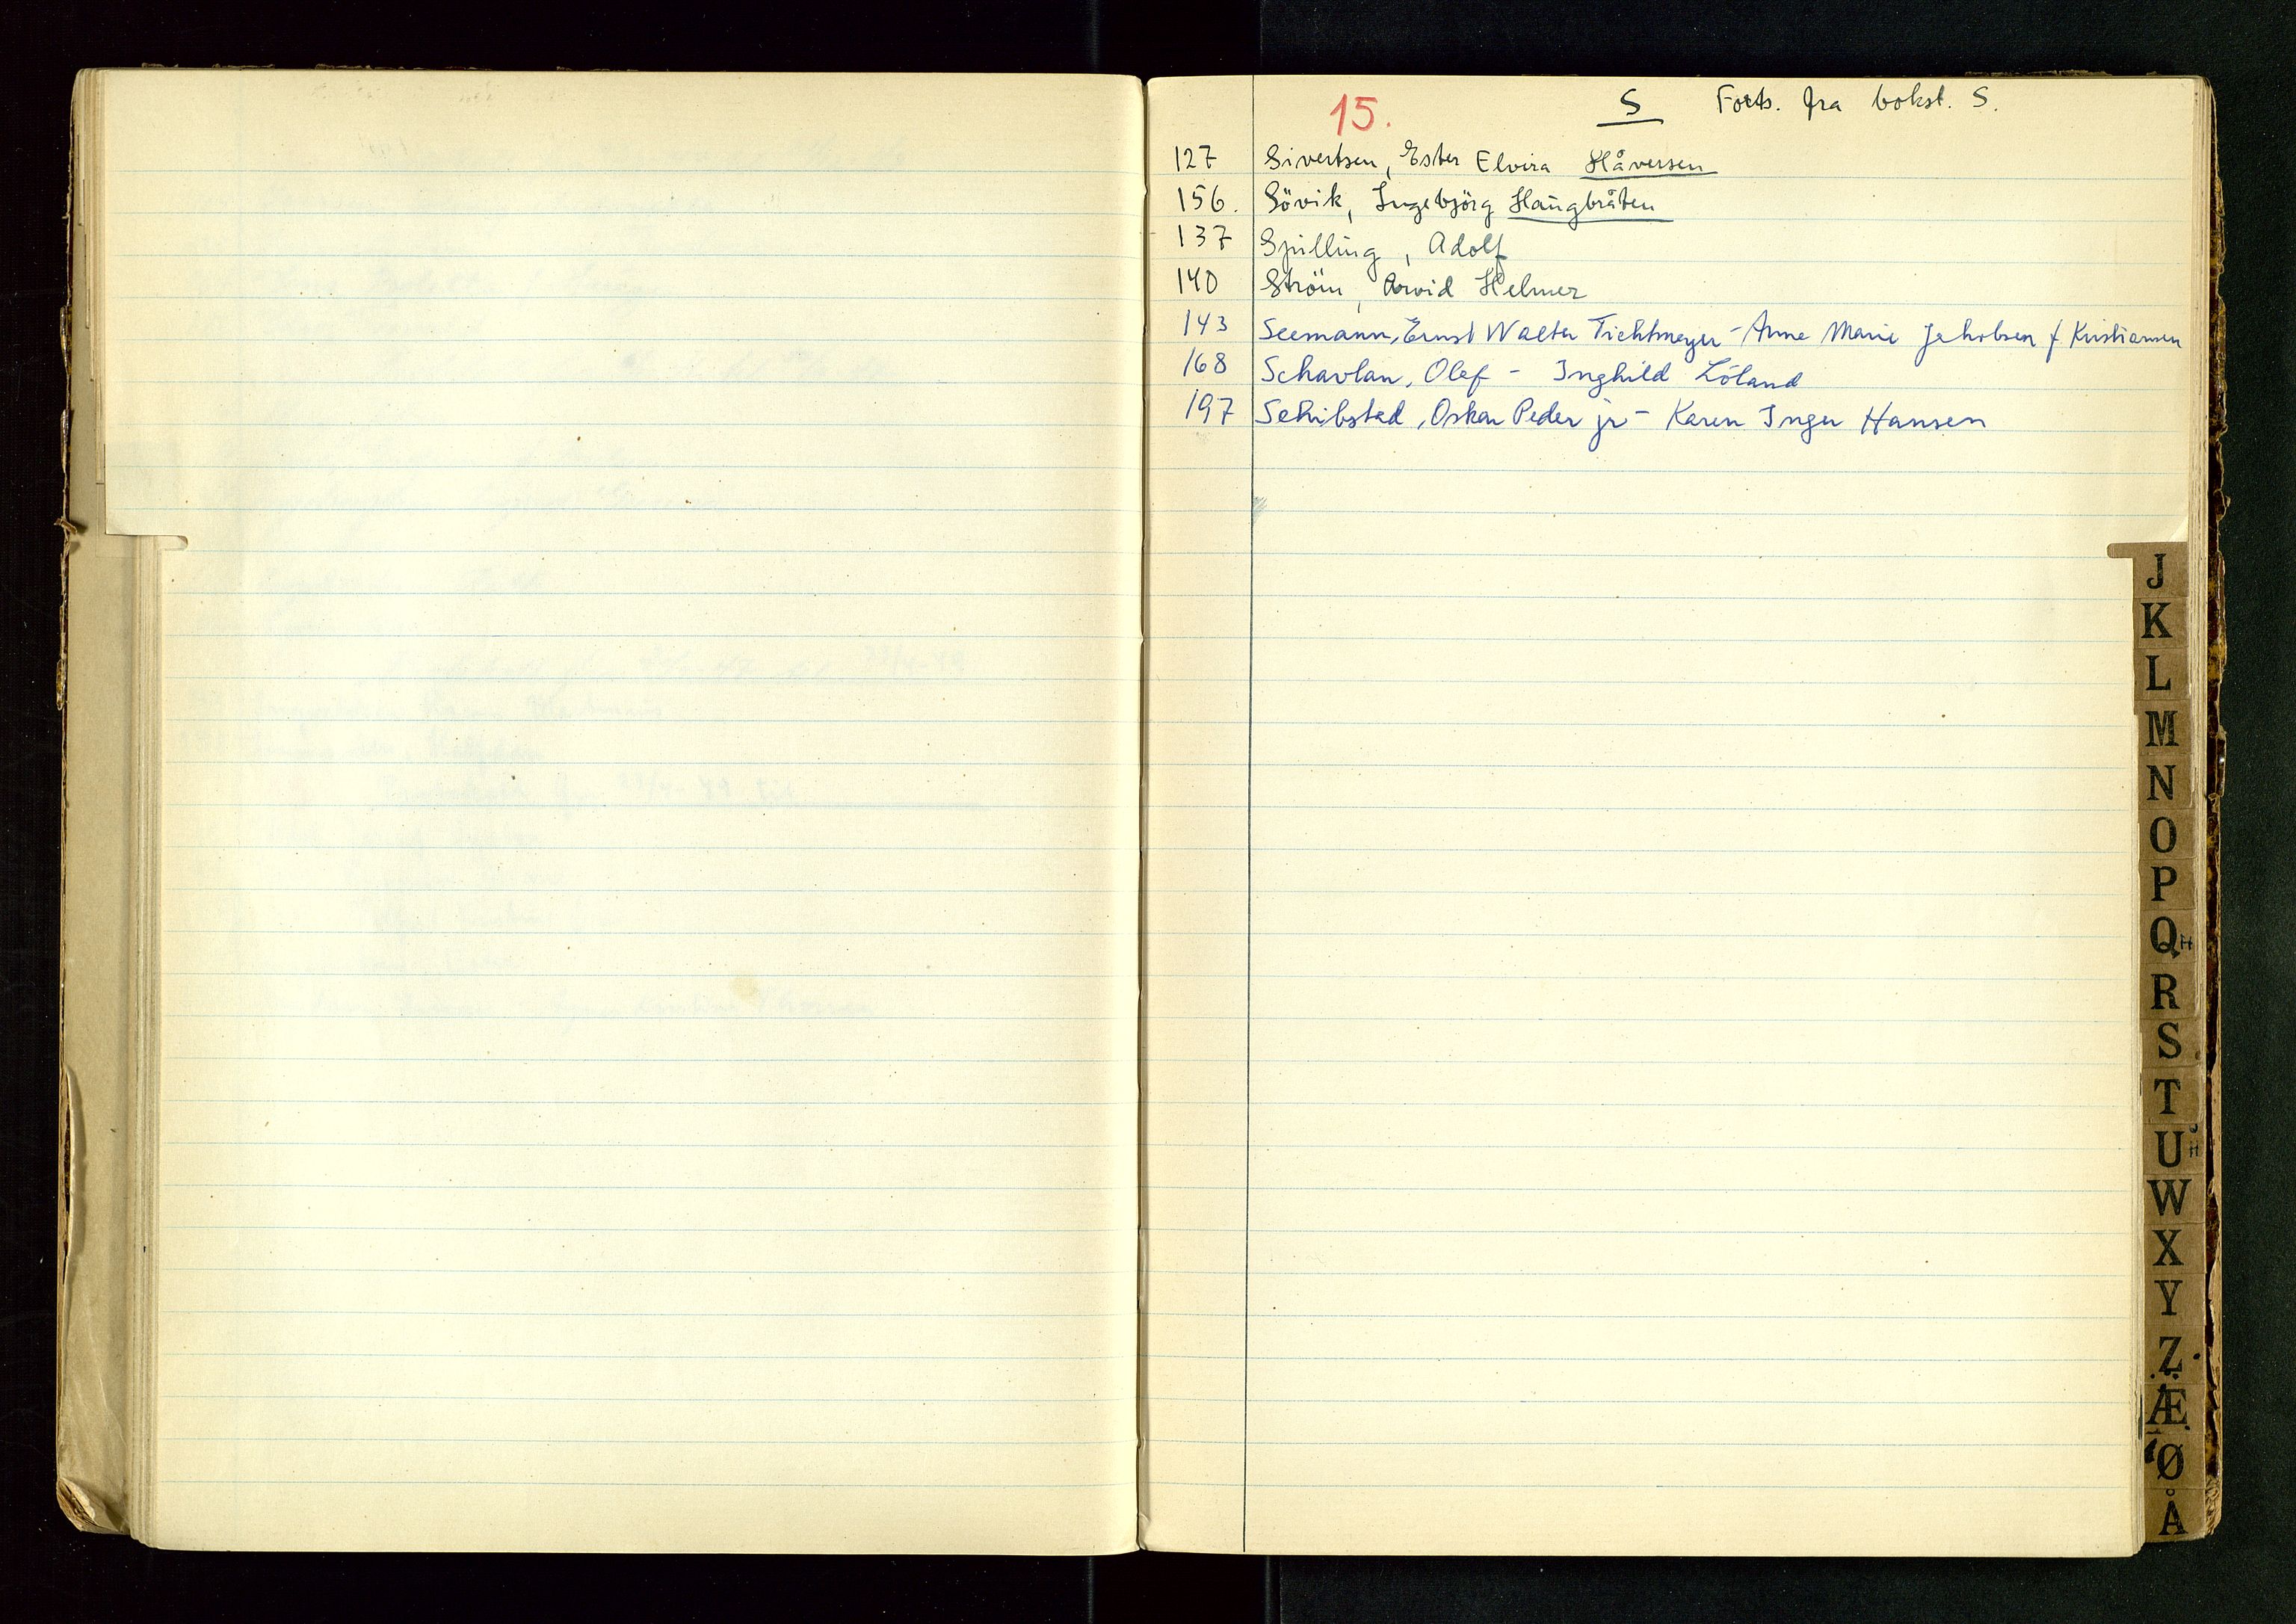 15. S Forts. fra bokst. S.
127 Sivertsen, Ester Elvira Håversen
156. Sövik, Ingebjörg Haugbråten
137 Spilling, Adolf
140 Ström, Arvid Helmer
143 Seemann, Ernst Walter Tichtmeyer - Anne Marie Jakobsen f Kristiansen
168 Schavlan, Olef - Inghild Löland
197 Schibstad, Oskar Peder jr - Karen Inger Hansen
J
K
L
M
N
O
P
Q H
R
S
T
U H
W
X
Y
Z
Æ
Ø
Å